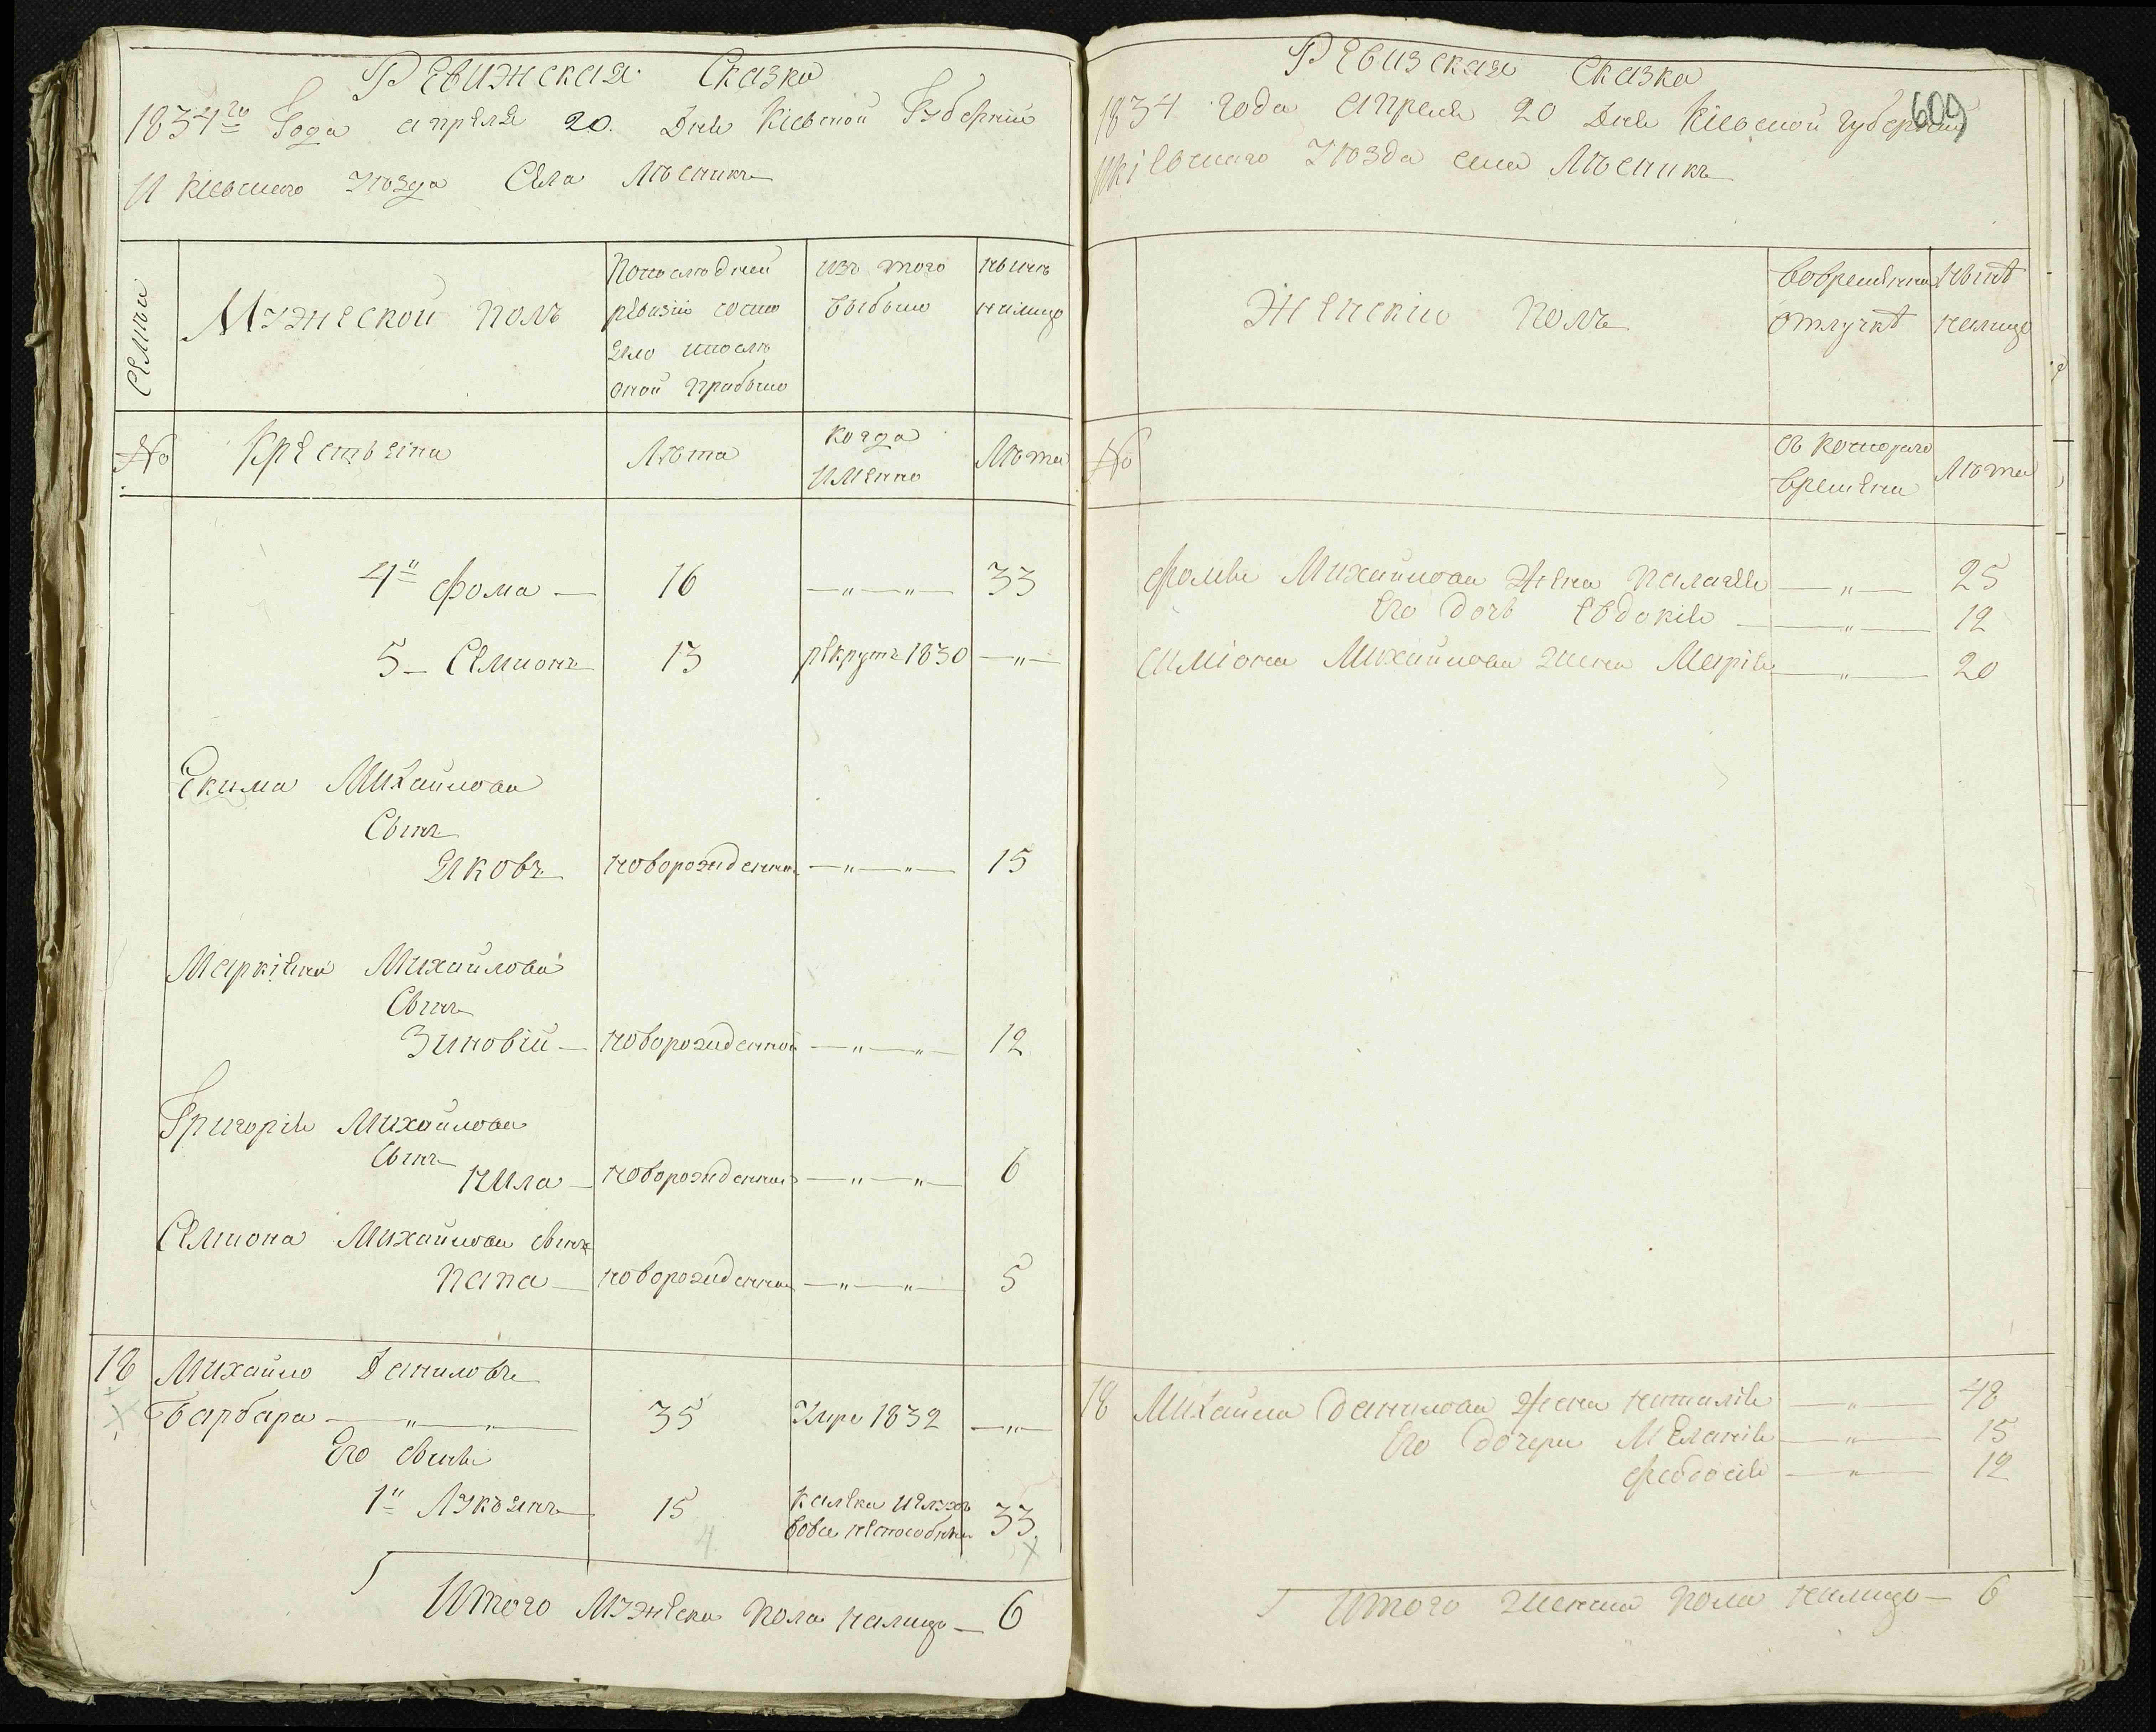 Ревижская Сказка
1834го Года апреля 20. Дня Кіевской Губерніи
И Кіевского Уѣзда Села Мѣсникъ
Семьи
Мужеской полъ
По последней
ревизіи состо
яло и после
оной прибыло
изъ того
выбыло
нынѣ
налицо
№
Крестьяни
Лѣта
когда
именно
Лѣта
4й Фома — 16 —"—"— 33
5 — Семионъ 13 рекрутъ 1830 —"—
Екима Михайлова
Сынъ
Яковъ новорожденной —"—"— 15
Маркіяна Михайлова
Сынъ
Зиновій — новорожденной —"—"— 12
Григорія Михайлова
Сынъ
Нила — новорожденной —"—"— 6
Семиона Михайлова сынъ
Папа — новорожденной —"—"— 5
18 Михайло Даниловъ
Барбара —"—"— 35 Умре 1832 —"—
Его сыня
1й Лукьянъ 15 калека и глухъ 33
вовсе неспособны
4
Итого мужеска пола налицо — 6
Ревизская Сказка
609
1834 года Апреля 20 Дня Кіевской Губерніи
И Кіевского Уѣзда села Мѣсникъ
Женскіо полъ
во временно
отлучкѣ
Нынѣ
налицо
№
съ которого
времени
Лѣта
Фомы Михайлова жена Палагея —"— 25
Его дочь Евдокія —"— 12
Симіона Михайлова жена Марія —"— 20
18 Михайла Данилова жена Наталія —"— 48
Его дочери Меланія —"— 15
Феодосія —"— 12
Итого женска пола налицо — 6